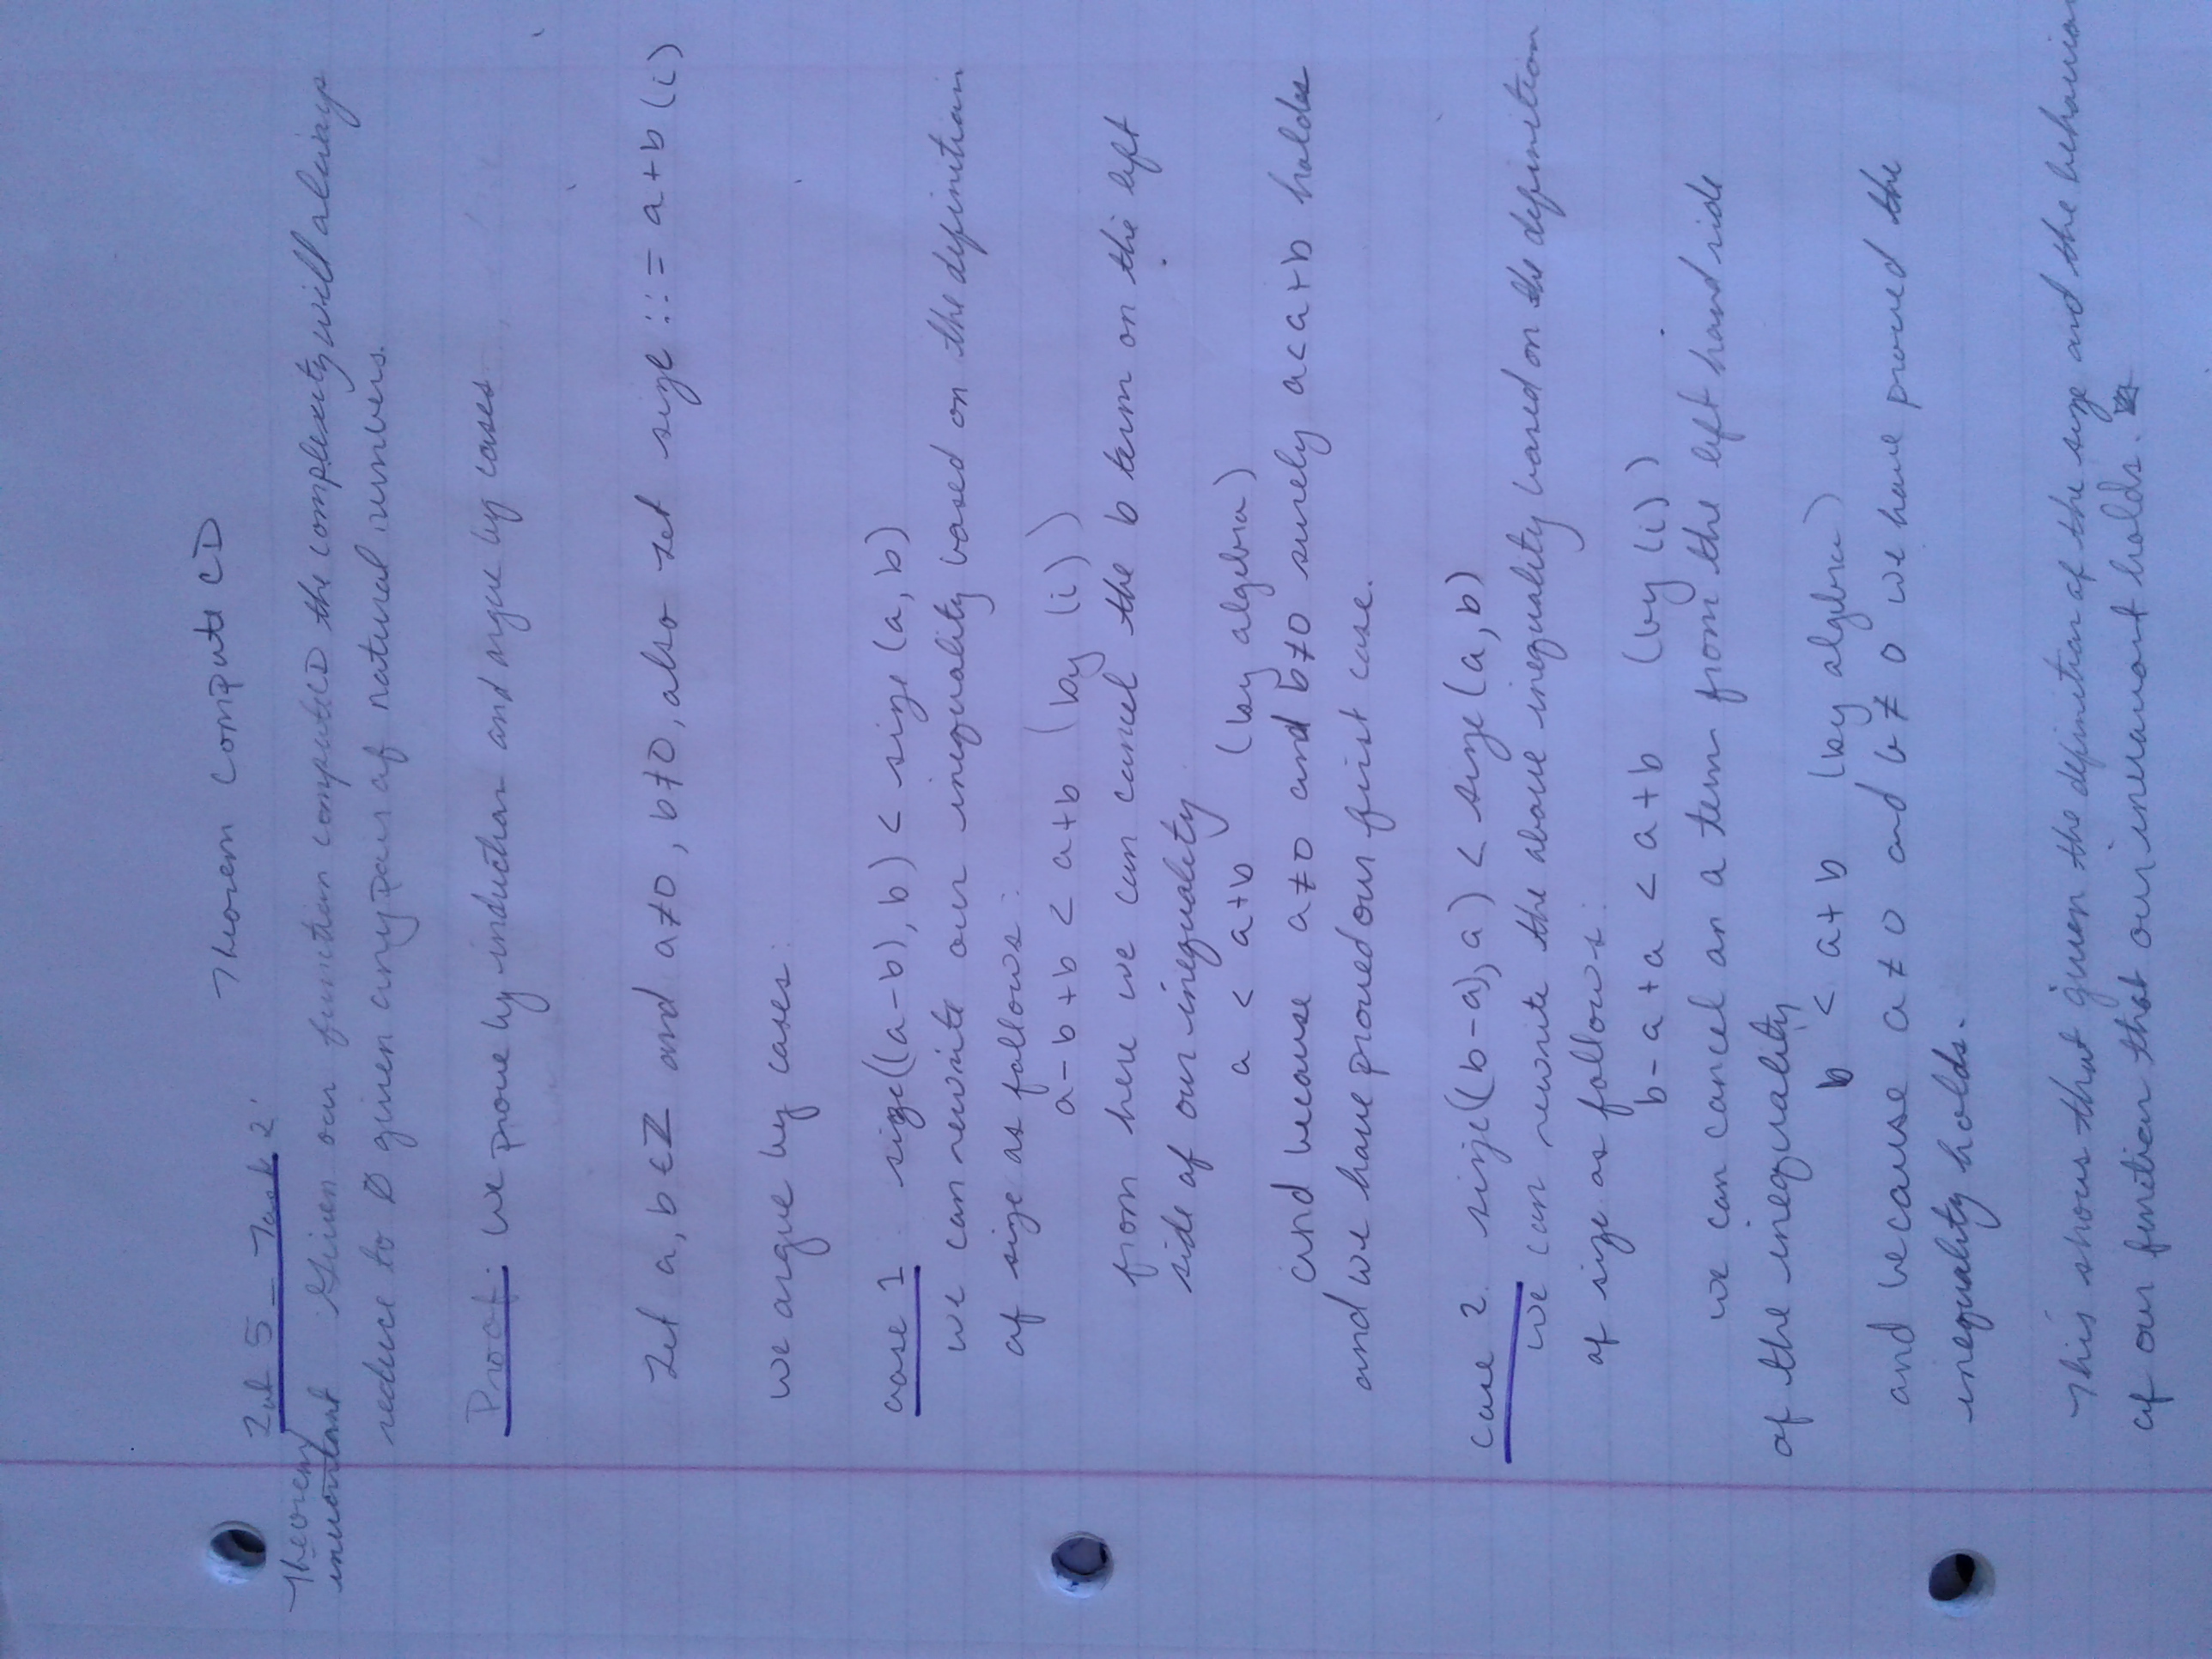 Theorem Compute CD
Lab 5 - Task 2
Theorem/
invariant Given our function computeCD the complexity will always
reduce to 0 given any pair of natural numbers.
Proof: We prove by induction and argue by cases
Let a, b ∈ Z and a≠0, b≠0, also let size ::= a+b (i)
we argue by cases:
case 1. size((a-b), b) < size (a, b)
we can rewrite our inequality based on the definition
of size as follows:
a-b+b < a+b (by (i))
from here we can cancel the b term on the left
side of our inequality
a < a+b (by algebra)
and because a≠0 and b≠0 surely a<a+b holds
and we have proved our first case.
case 2. size((b-a), a) < size(a, b)
we can rewrite the above inequality based on the definition
of size as follows:
b-a+a < a+b (by (i))
we can cancel an a term from the left hand side
of the inequality
b < a+b (by algebra)
and because a≠0 and b≠0 we have proved the
inequality holds.
This shows that given the definition of the size and the behavior
of our function that our invariant holds.